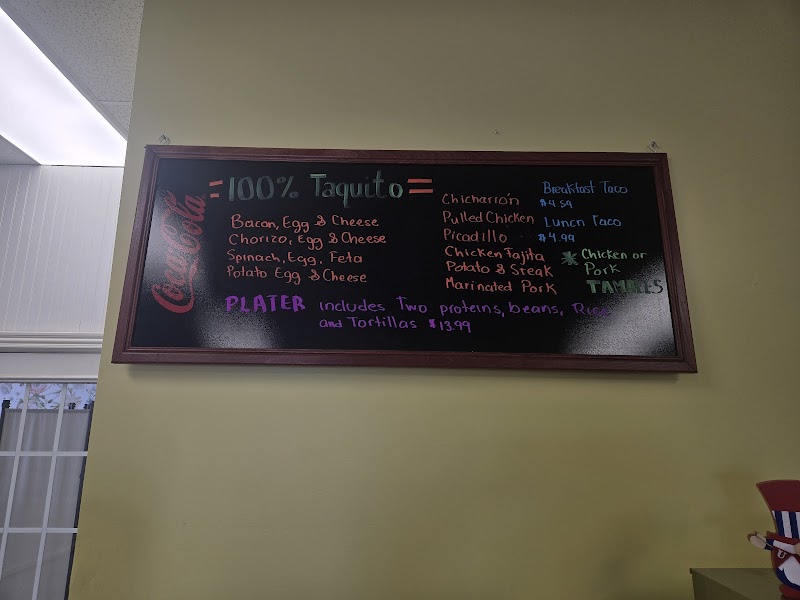 Coca-Cola
= 100% Taquito =
Bacon, Egg & Cheese
Chorizo, Egg & Cheese
Spinach, Egg, Feta
Potato Egg & Cheese
Chicharrón
Pulled Chicken
Picadillo
Chicken Fajita
Potato & Steak
Marinated Pork
Breakfast Taco
$4.59
Lunch Taco
$4.99
* Chicken or
Pork
TAMALES
PLATER includes Two proteins, beans, Rice
and Tortillas $13.99